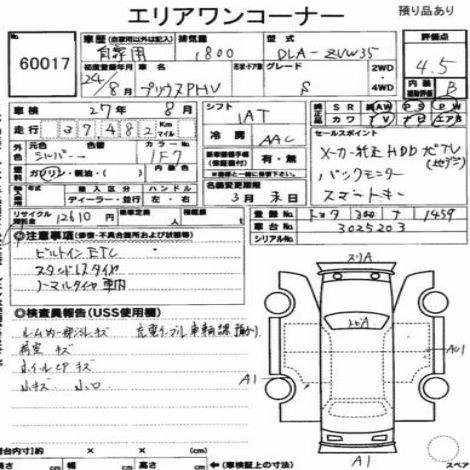 エリアワンコーナー
預り品あり
60017
車歴 (自家用以外は記入) 自家用
排気量 1800
型式 DLA-ZVW35
評価点 4.5
初度登録年月 24/8月
車名 プリウスPHV
形状・ドア数
グレード S
2WD・4WD
内装 補助評価 B
車検 27年 8月
シフト IAT
純正 SR AW PS PW
カワ TV エアB
走行 37482 Km マイル
冷房 AAC
セールスポイント
メーカー純正HDD地デジTV
バックモニター
スマートキー
外色 シルバー
色替
カラーNo. 1F7
燃料 ガソリン・軽油・( )
新車整備手帳(保証書付) 有・無
輸入区分 ディーラー・並行
ハンドル 左・右
名義変更期限 3月末日
リサイクル預託金 12610円
乗車定員 人
積載量 kg
登録No. 1459
車台No. 3025203
シリアルNo.
◎注意事項(修復・不具合箇所および状態等)
ビルトインETC
スタッドレスタイヤ
ノーマルタイヤ車内
◎検査員報告(USS使用欄)
ルーム内一部汚レキズ
充電ケーブル
荷室 キズ
小キズ
スリA
トビA
A1
A1
スペア
荷台内寸 × × (cm)
高さ cm 幅 cm 高さ cm ←(車検証上の寸法)